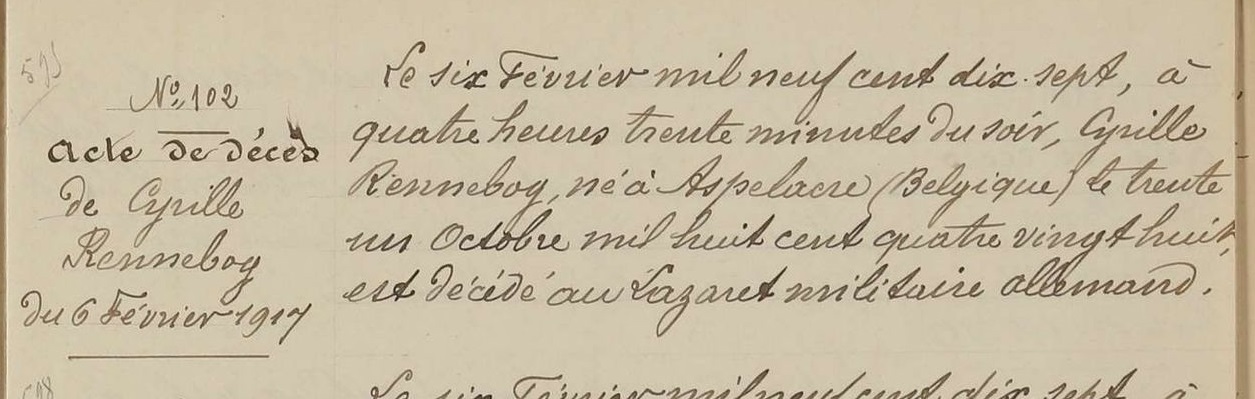 595
Nº 102
Acte de décès
de Cyrille
Rennebog
du 6 Février 1917
Le six Février mil neuf cent dix-sept, à
quatre heures trente minutes du soir, Cyrille
Rennebog, né à Aspelaere (Belgique) le trente
un Octobre mil huit cent quatre vingt huit,
est décédé au Lazaret militaire allemand.
Le six Février mil neuf cent dix sept, à